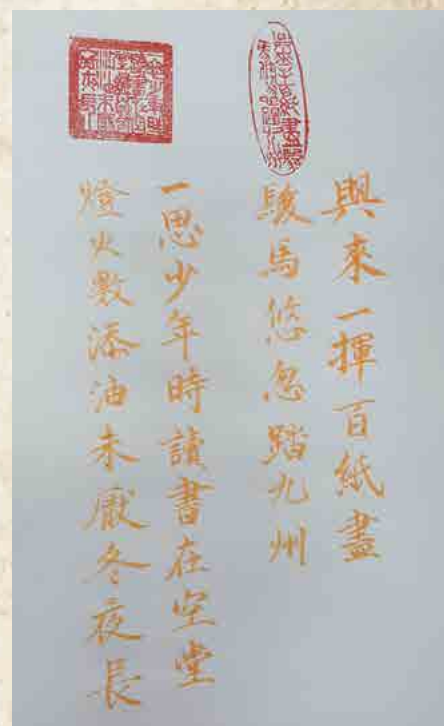 興來一揮百紙盡
駿馬悠忽踏九州
一思少年時讀書在空堂
燈火數添油未厭冬夜長